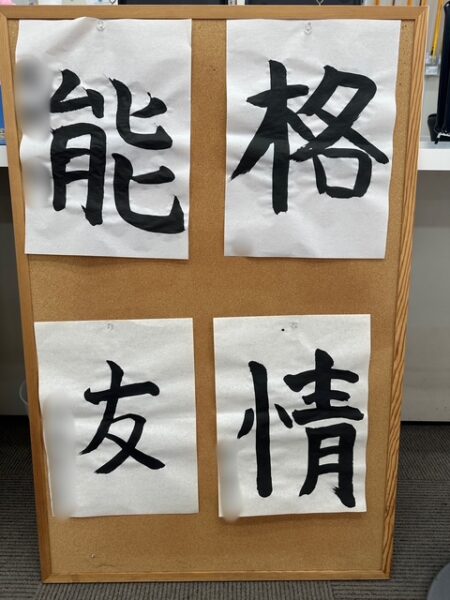 能
格
友
情